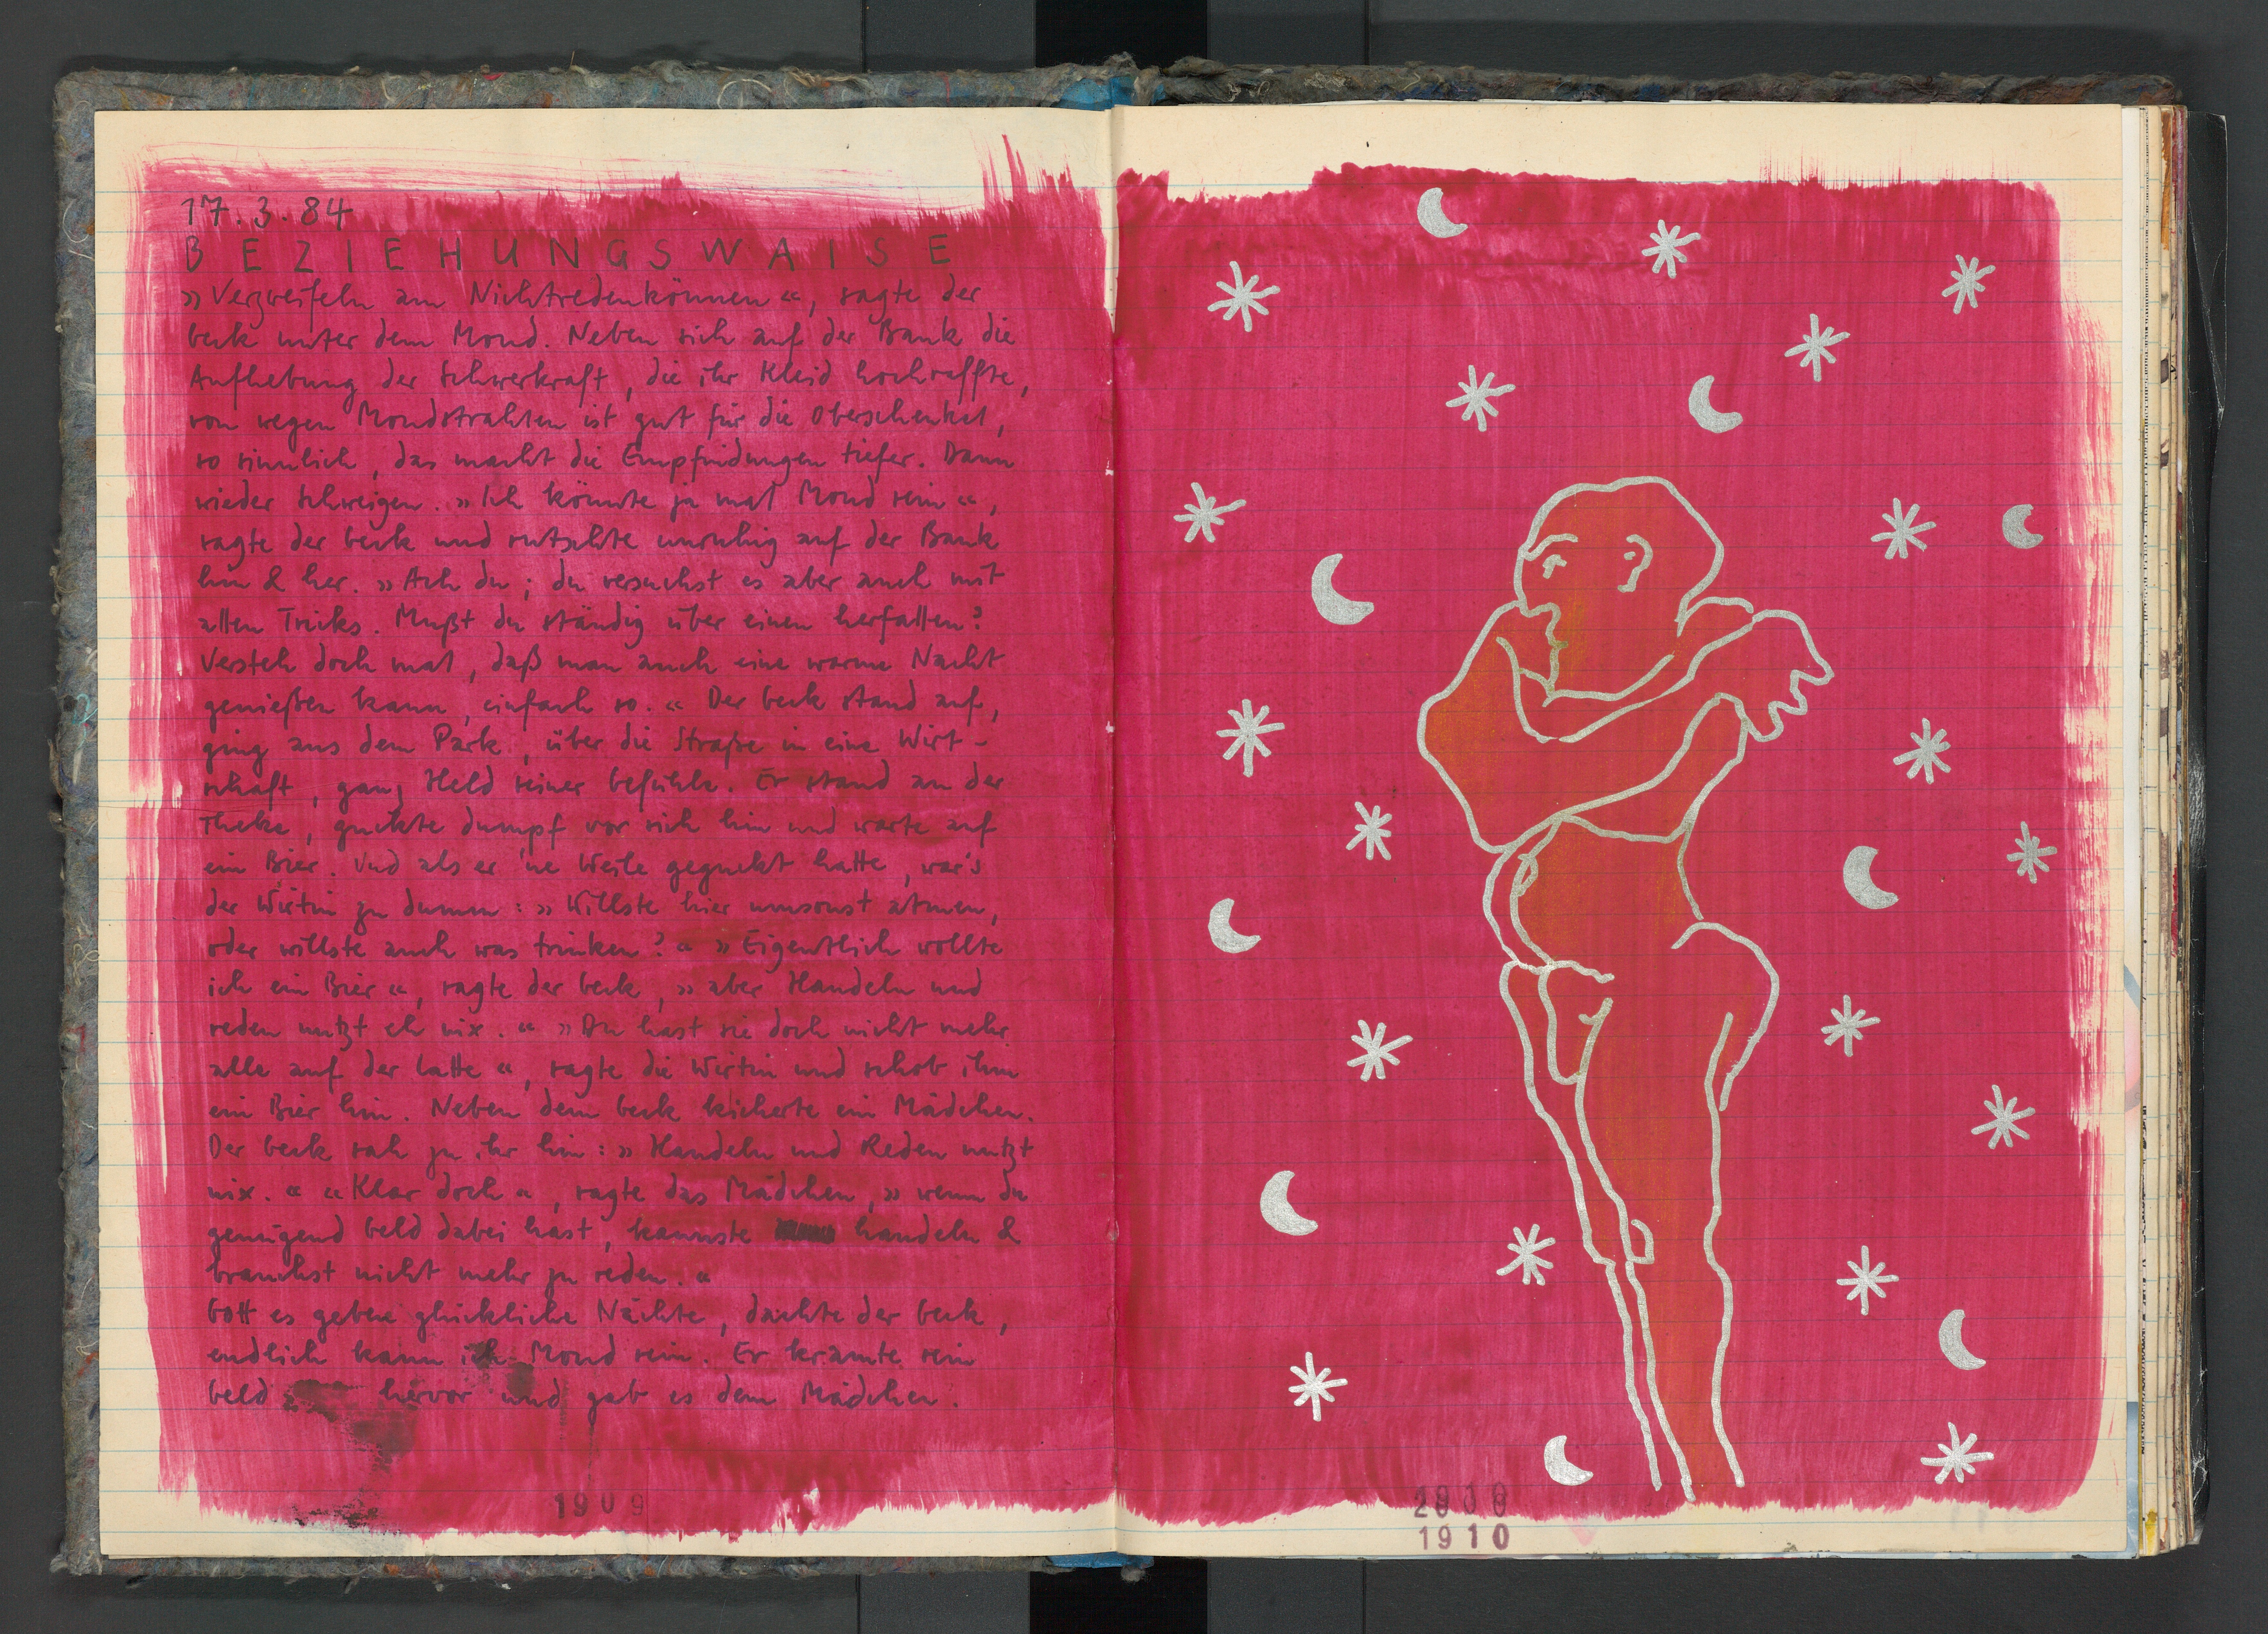 17.3.84
BEZIEHUNGSWAISE
»Verzweifeln am Nichtredenkönnen«, sagte der
beck unter dem Mond. Neben sich auf der Bank die
Aufhebung der Schwerkraft, die ihr Kleid hochraffte,
von wegen Mondstrahlen ist gut für die Oberschenkel,
so sinnlich, das macht die Empfindungen tiefer. Dann
wieder Schweigen. »Ich könnte ja mal Mond sein«,
sagte der beck und rutschte unruhig auf der Bank
hin & her. »Ach du; du versuchst es aber auch mit
allen Tricks. Mußt du ständig über einen herfallen?
Versteh doch mal, daß man auch eine warme Nacht
genießen kann, einfach so.« Der beck stand auf,
ging aus dem Park, über die Straße in eine Wirt-
schaft, ganz Held seiner Gefühle. Er stand an der
Theke, guckte dumpf vor sich hin und warte auf
ein Bier. Und als er 'ne Weile geguckt hatte, war's
der Wirtin zu dumm: »Willste hier umsonst atmen,
oder willste auch was trinken?« »Eigentlich wollte
ich ein Bier«, sagte der beck, »aber Handeln und
reden nutzt eh nix.« »Du hast sie doch nicht mehr
alle auf der Latte«, sagte die Wirtin und schob ihm
ein Bier hin. Neben dem beck kicherte ein Mädchen.
Der beck sah zu ihr hin: »Handeln und Reden nutzt
nix.« «Klar doch«, sagte das Mädchen, »wenn du
genügend Geld dabei hast, kannste handeln &
brauchst nicht mehr zu reden.«
Gott es gebene glückliche Nächte, dachte der beck,
endlich kann ich Mond sein. Er kramte sein
Geld hervor und gab es dem Mädchen.
1909
1910